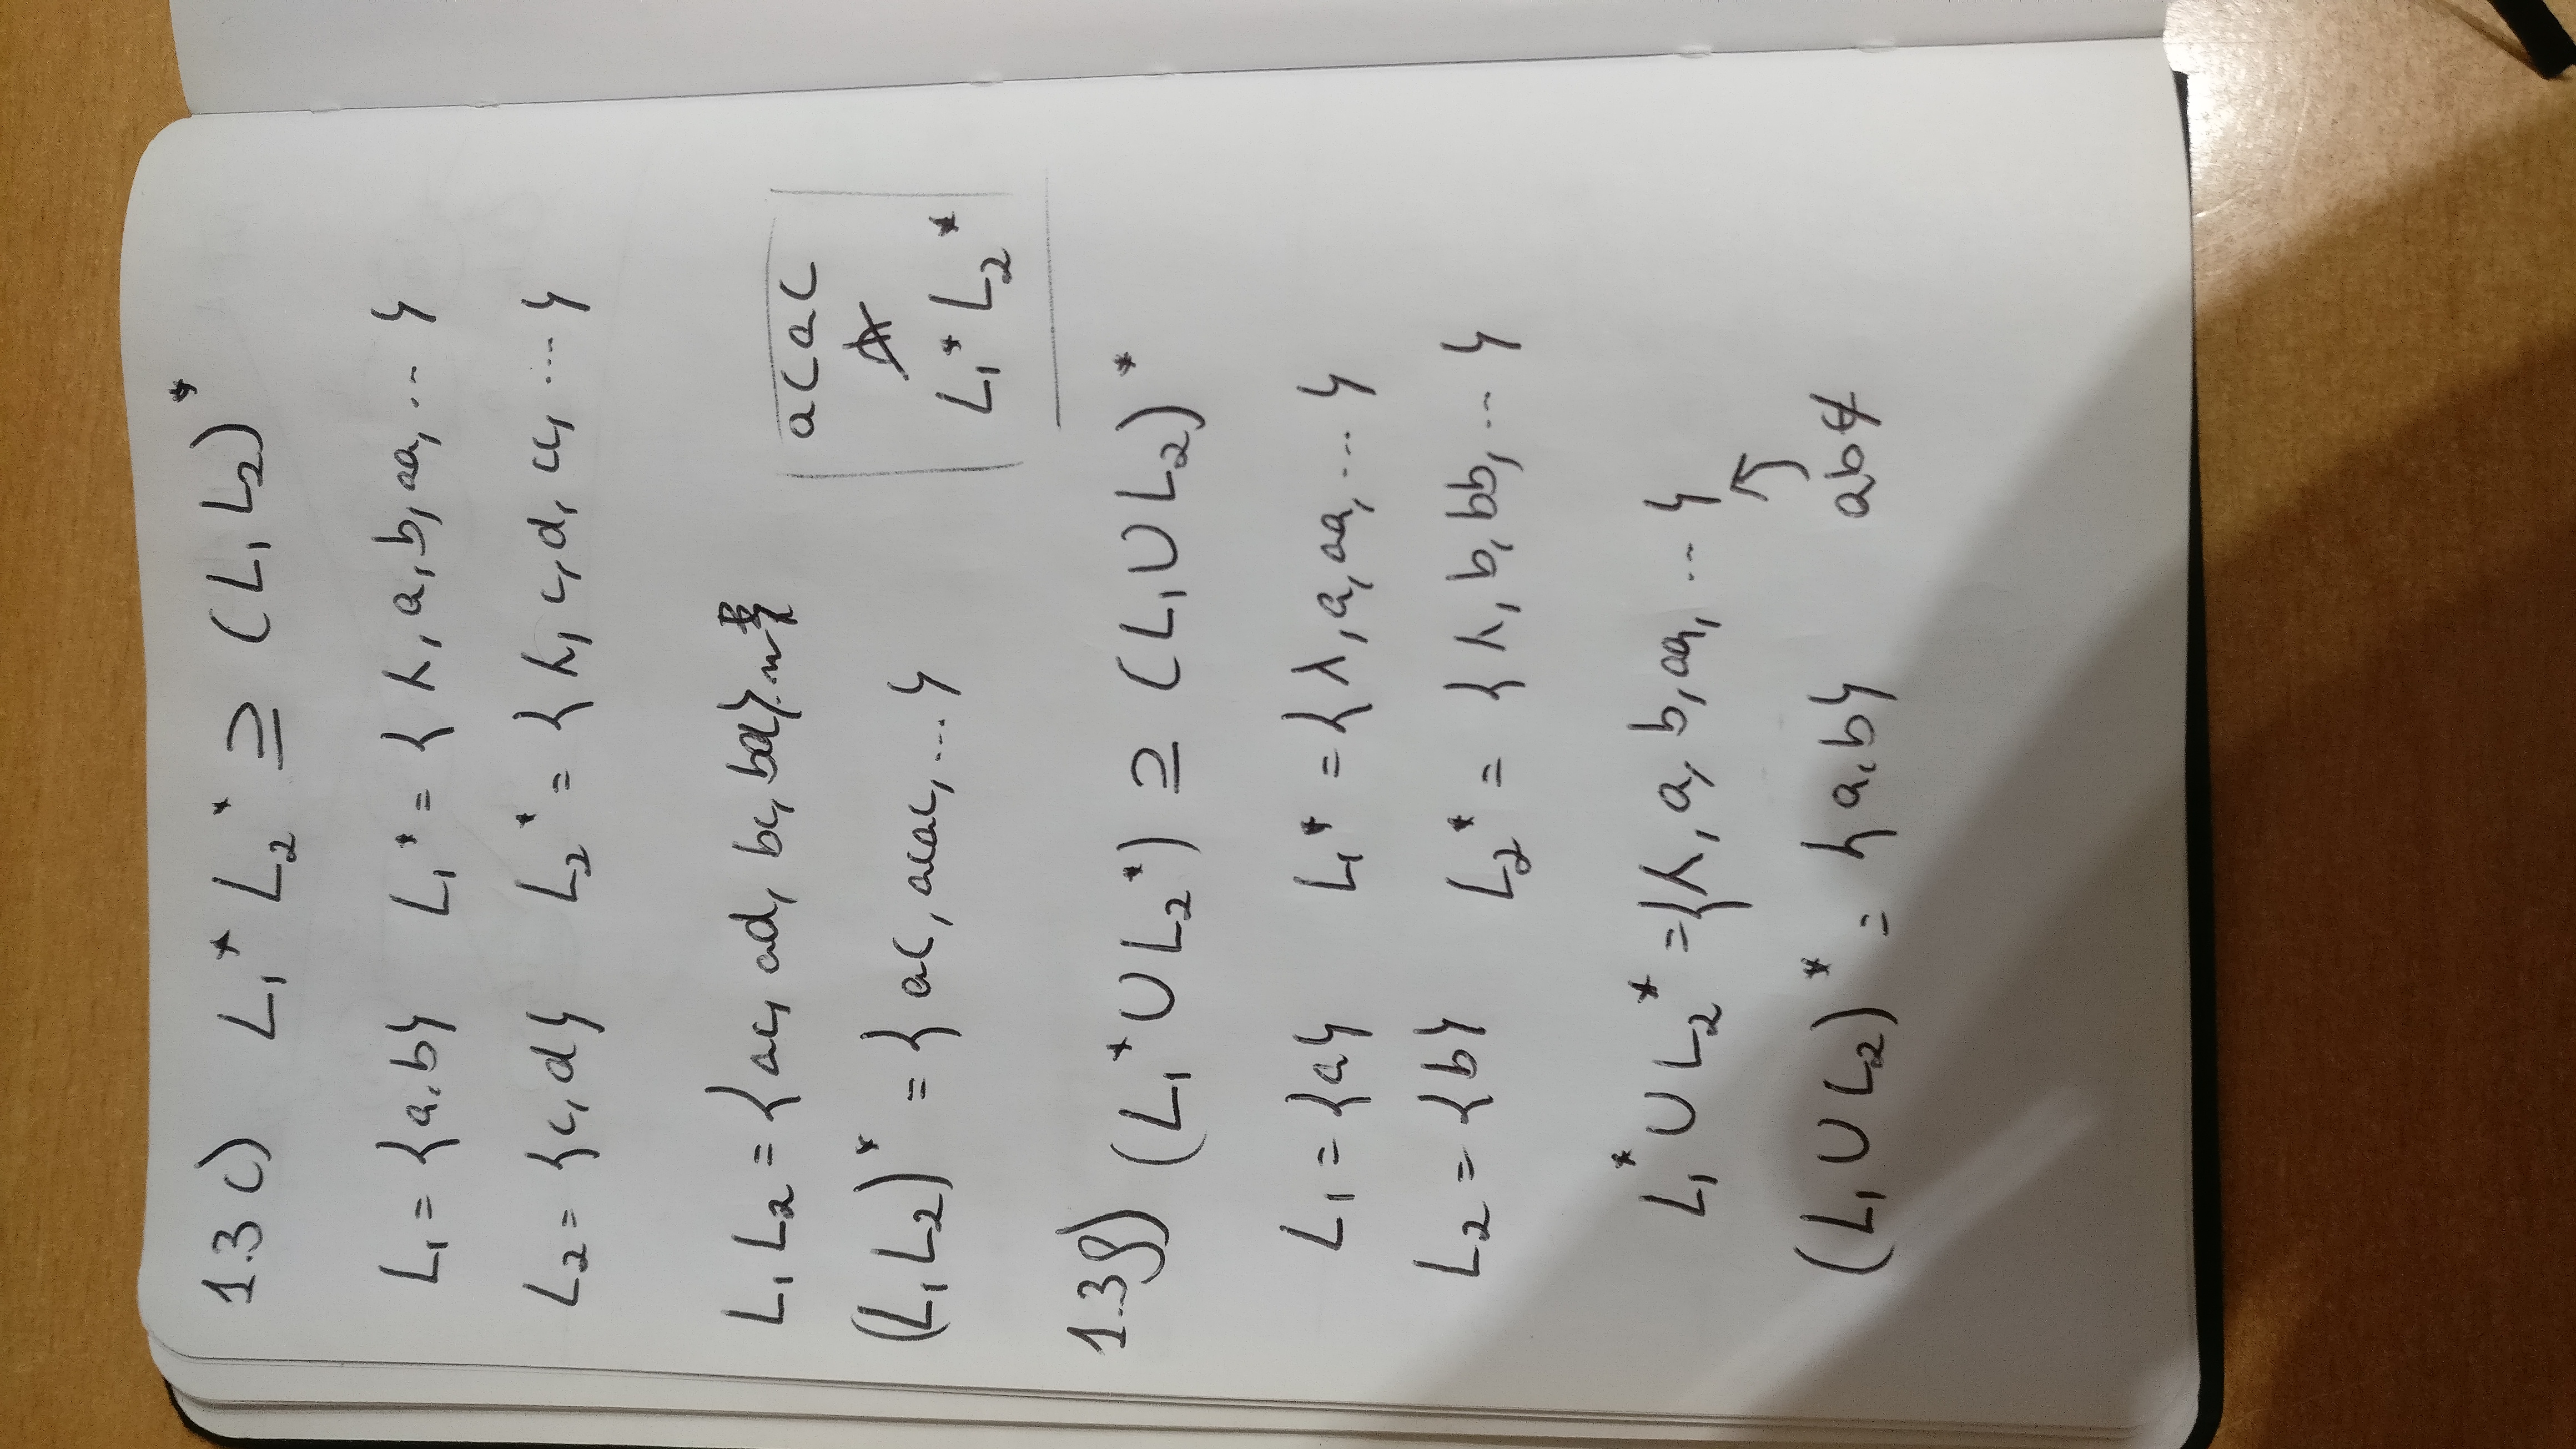 1.3 c) L₁* L₂* ⊇ (L₁ L₂)*
L₁ = {a, b} L₁* = {λ, a, b, aa, ...}
L₂ = {c, d} L₂* = {λ, c, d, cc, ...}
L₁ L₂ = {ac, ad, bc, bd}
acac
∉
L₁* L₂*
(L₁ L₂)* = {ac, acac, ...}
1.3 g) (L₁* ∪ L₂*) ⊇ (L₁ ∪ L₂)*
L₁ = {a} L₁* = {λ, a, aa, ...}
L₂ = {b} L₂* = {λ, b, bb, ...}
L₁* ∪ L₂* = {λ, a, b, aa, ...}
(L₁ ∪ L₂)* = {a, b} ab ∉